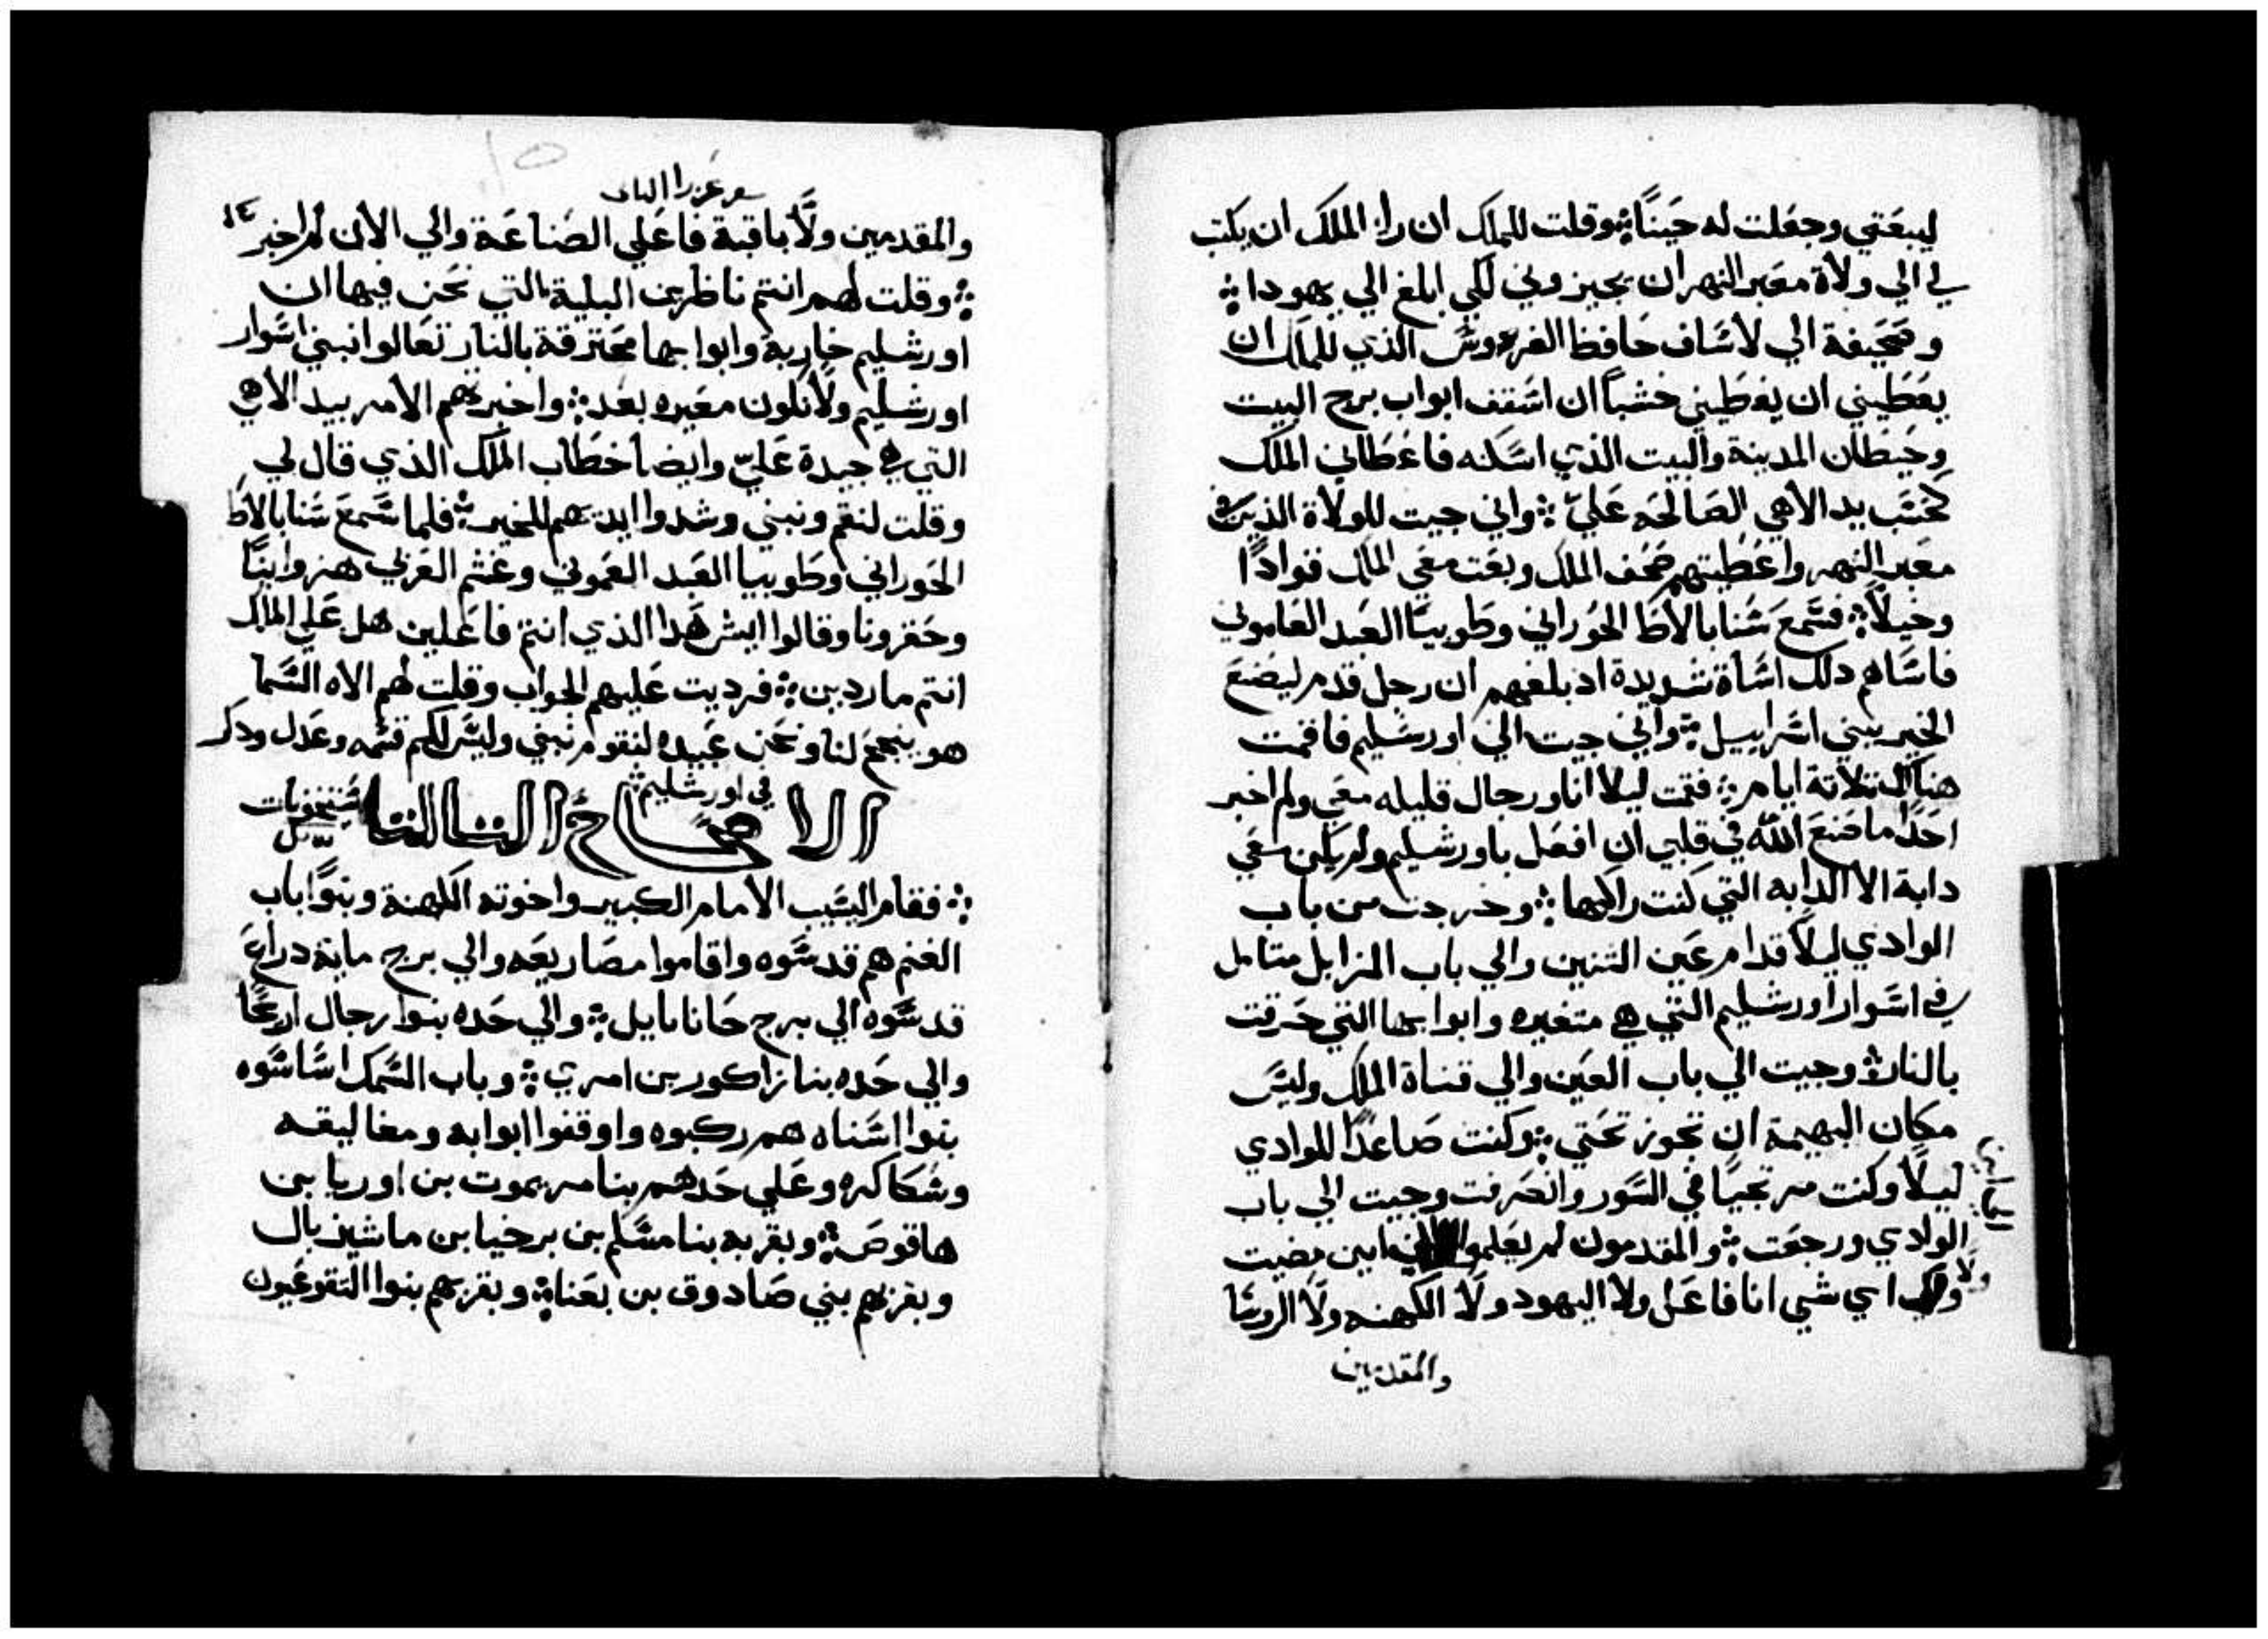 ليبعتني وجعلت له حينًا ⁘ وقلت للملك ان راا الملك ان يكتب
لي الي ولاة معبر النهر ان يجيزوني لكي ابلغ الي يهودا ⁘
وصحيفة الي لاساف حافظ الفردوس الذي للملك ان
يعطيني ان يعطيني خشباً ان اسقف ابواب برج البيت
وحيطان المدينة والبيت الذي اسكنه فاعطاني الملك
كحسب يد الاهي الصالحه عليّ ⁘ واني جيت للولاة الذين في
معبر النهر واعطيتهم صحف الملك وبعت معي الملك قوادًا
وخيلاً ⁘ فسمع سنابالاط الحوراني وطوبيا العبد العاموني
فاساهم دلك اساة شديدة اد بلغهم ان رجل قدم ليصنع
الخير ببني اسراييل ⁘ واني جيت الي اورشليم فاقمت
هناك تلاتة ايام ⁘ فقمت ليلا انا ورجال قليله معي ولم اخبر
احدًا ما صنع الله في قلبي ان افعل باورشليم ولم يكن معي
دابة الا الدابه التي كنت راكبها ⁘ وخرجت من باب
الوادي ليلاً قدام عين التنين والي باب المزابل متامل
في اسوار اورشليم التي هي متغيره وابوابها التي حرقت
بالنار ⁘ وجيت الي باب العين والي قناة الملك وليس
مكان البهيمة ان تجوز تحتي ⁘ وكنت صاعدًا للوادي
ليلًا وكنت مرتجيًا في السور وانصرفت وجيت الي باب
الوادي ورجعت ⁘ والمقدمون لم يعلموا اين مضيت
ولا اي شي انا فاعل ولا اليهود ولا الكهنه ولا الروسا
والمقدمين
سفر عزرا التاني
والمقدمين ولا باقية فاعلي الصناعة والي الان لم اخبر
⁘ وقلت لهم انتم ناظرين البلية التي نحن فيها ان
اورشليم خاربة وابوابها محترقة بالنار تعالوا نبني اسوار
اورشليم ولا نكون معيره بعد ⁘ واخبرتهم الامر بيد الاهي
التي هي جيدة عليّ وايضا خطاب الملك الذي قال لي
وقلت لنقم ونبني وشدوا ايديهم للخير ⁘ فلما سمع سنابالاط
الحوراني وطوبيا العبد العموني وغثم العزبي هزوا بنا
وحقرونا وقالوا ايش هدا الذي انتم فاعلين هل علي الملك
انتم ماردين ⁘ فرديت عليهم الجواب وقلت لهم الاه السما
هو ينجح لنا ونحن عبيده لنقوم نبني وليس لكم قسمه وعدل ودكر
في اورشليم ⁘
الاصحاح التالت
⁘ فقام اليسيب الامام الكبير واخوته الكهنة وبنوا باب
الغنم هم قدسوه واقاموا مصاريعه والي برج ماية دراع
قدسوه الي برج حانانايل ⁘ والي حده بنوا رجال اريحا
والي حده بنا زاكور بن امري ⁘ وباب السمك اساسوه
بنوا اسناه هم ركبوه واوقفوا ابوابه ومغاليقه
وشكاكره وعلي حدهم بنا مريموت بن اوريا بن
هاقوص ⁘ وبقربه بنا مسلم بن برخيا بن ماشيزبال
وبقربهم بني صادوق بن بعنا ⁘ وبقربهم بنوا التقوعيون